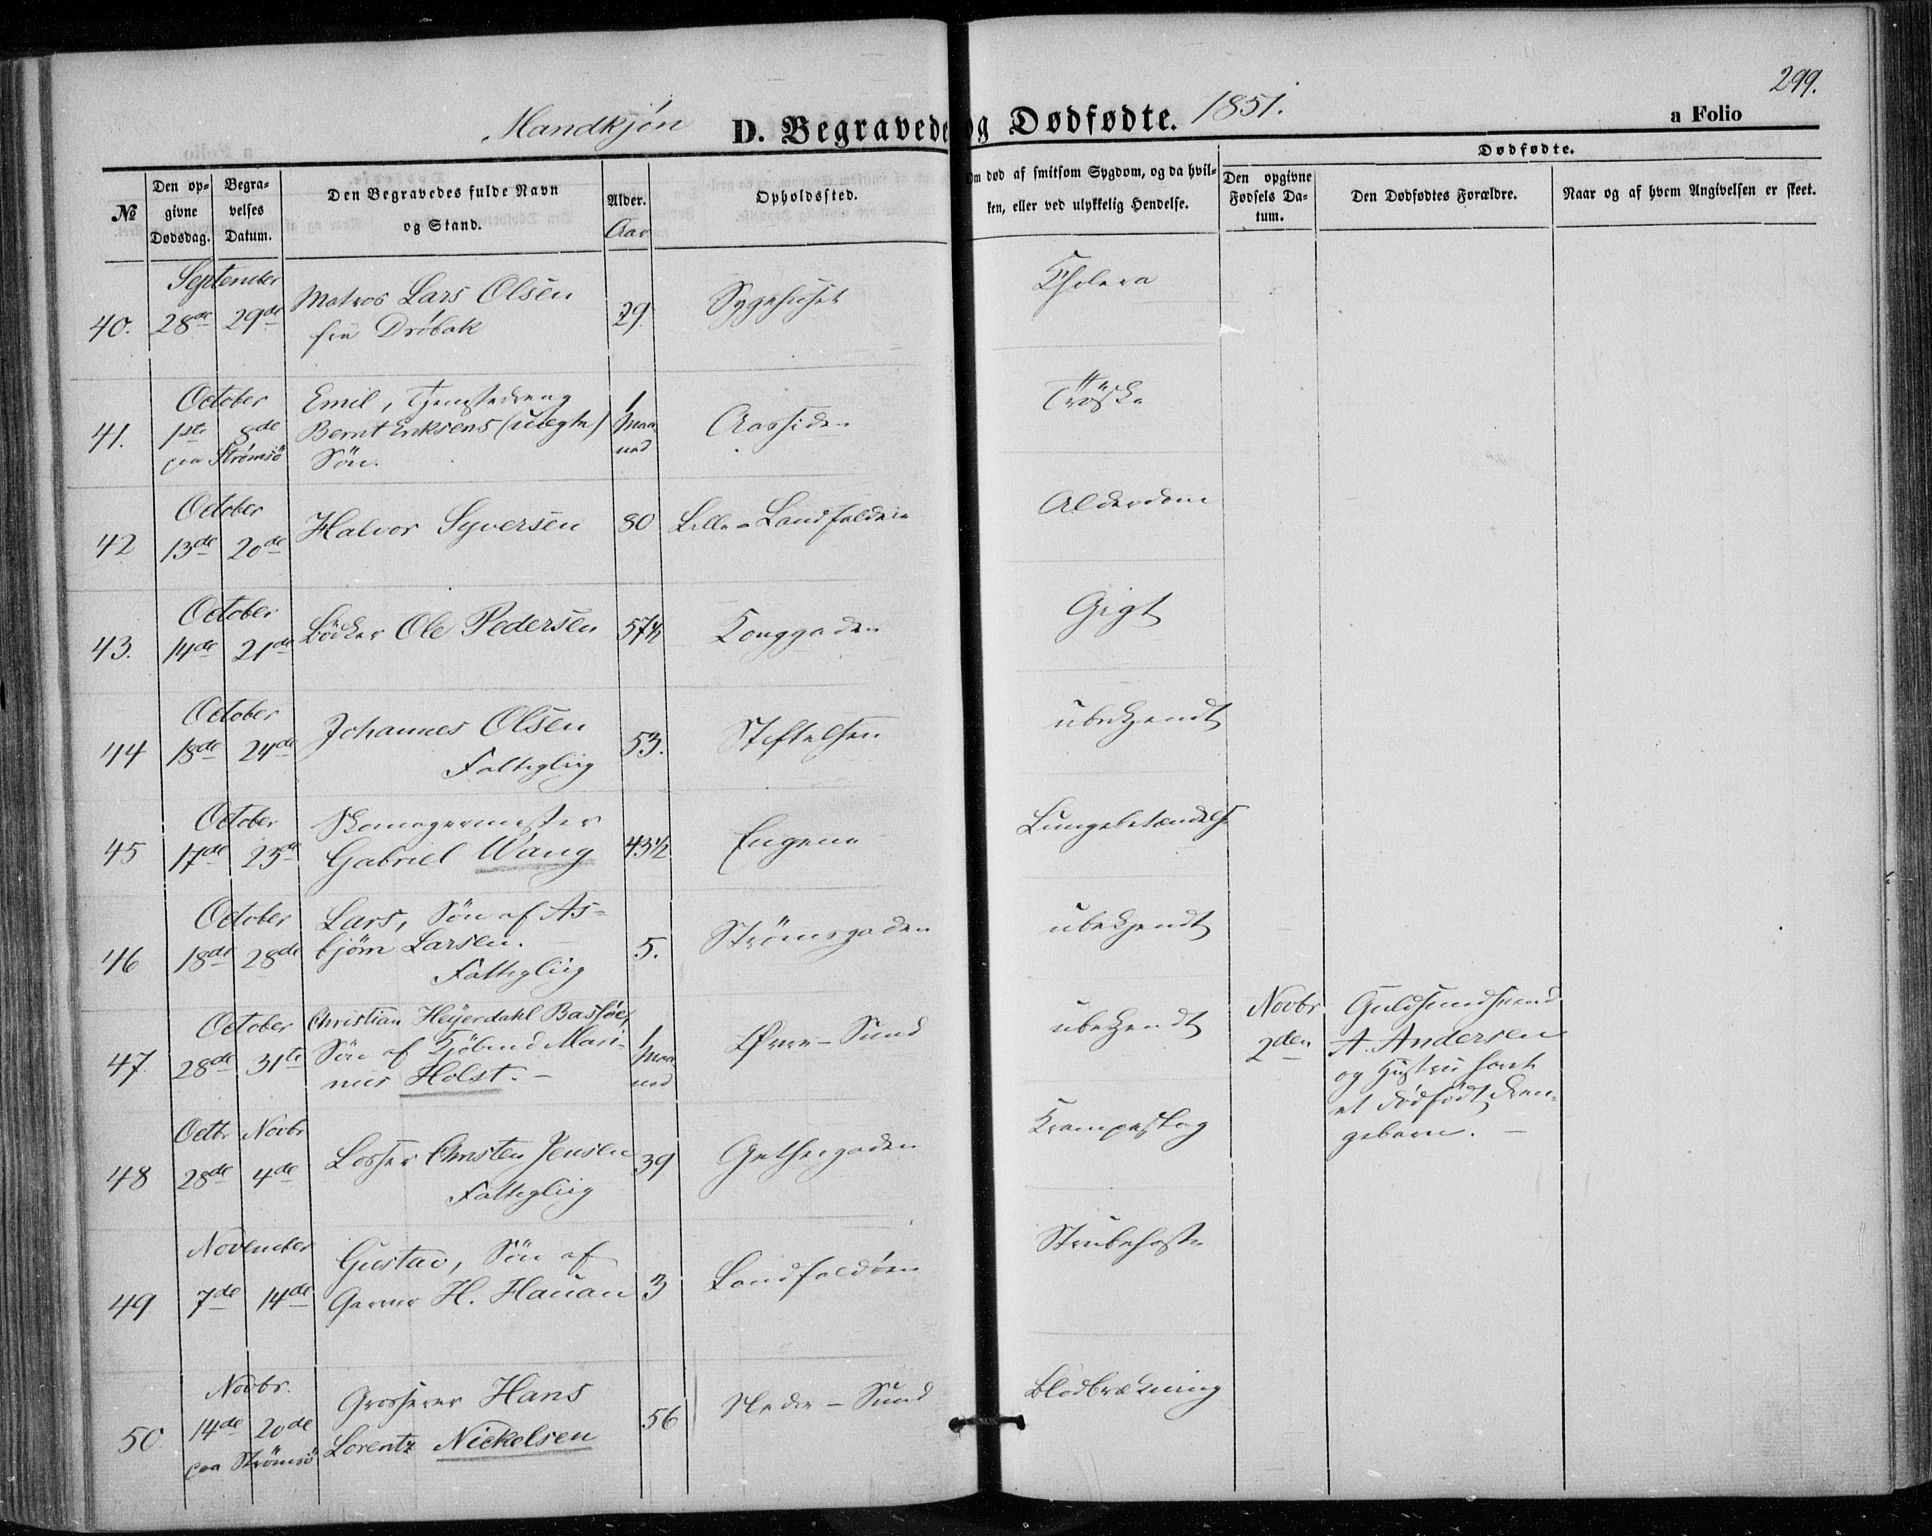 299.
Mandkjøn D. Begravede og Dødfødte. 1851. a Folio
№
Den op-
givne
Dødsdag.
Begra-
velses
Datum.
Den Begravedes fulde Navn
og Stand.
Alder.
Aar
Opholdssted.
Om død af smitsom Sygdom, og da hvil-
ken, eller ved ulykkelig Hendelse.
Dødfødte.
Den opgivne
Fødsels Da-
tum.
Den Dødfødtes Forældre.
Naar og af hvem Angivelsen er skeet.
September
40. 28de 29de Matros Lars Olsen
fra Drøbak 29. Sygehuset Cholera
October
41. 1ste 8de
paa Strømsö
Emil, Tjenstedreng
Bernt Eriksens (uægte)
Sön.
1
Maa-
ned
Aassiden Tröske
October
42 13de 20de Halvor Syversen 80 Lille-Landfalden Alderdom
October
43. 14de 21de Bödker Ole Pedersen 57½ Konggaden Gigt
October
44 18de 24de Johannes Olsen
Fattiglig 53. Stiftelsen ubekjendt
October
45 17de 23de Skomagermester
Gabriel Wang 43½ Engene Lungebetændelse
October
46 18de 28de Lars, Sön af As-
bjørn Larsen.
Fattiglig 5. Strömsgaden ubekjendt
October
47 28de 31te Christian Heyerdahl Basföe,
Sön af Kjöbmd Mari-
nus Holst. -
1
Maa-
ned
Øvre-Sund ubekjendt
Novbr
2den
Guldsmedsvend
A. Andersen
og Hustru havt
et dödfödt dren-
gebarn. -
Octbr Novbr
48 28de 4de Losser Christen Jensen
Fattiglig 39 Gethergaden Krampeslag
November
49 7de 14de Gustav, Sön af
Garver H. Hauan 3 Landfaldöen Strubehoste
Novbr.
50 14de 20de
paa Strömsö
Grosserer Hans
Lorentz Nickelsen 56 Nedre-Sund Blodbrækning